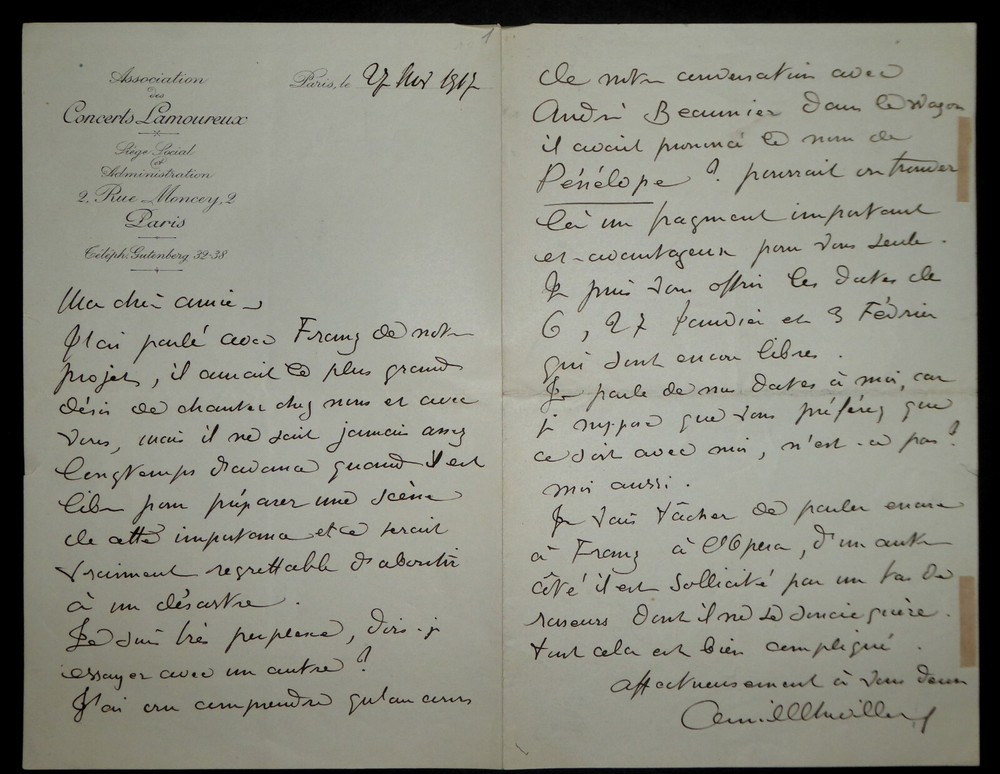 Association
des
Concerts Lamoureux
Siège Social
et
Administration
2, Rue Moncey, 2
Paris
Téléph. Gutenberg 32-38
Paris, le 27 Nov 1917
1
Ma chère amie
J'ai parlé avec Franz de notre
projet, il aurait le plus grand
désir de chanter chez nous et avec
vous, mais il ne sait jamais assez
longtemps d'avance quand il est
libre pour préparer une scène
de cette importance et ce serait
vraiment regrettable d'aboutir
à un désastre.
Je suis très perplexe, dois-je
essayer avec un autre ?
J'ai cru comprendre qu'au cours
de notre conversation avec
André Beaunier dans le wagon
il avait prononcé le nom de
Pénélope ? pourrait on trouver
là un fragment important
et avantageux pour vous seule.
Je puis vous offrir les dates de
6, 27 Janvier et 3 Février
qui sont encore libres.
Je parle de mes dates à moi, car
je suppose que vous préférez que
ce soit avec moi, n'est-ce pas ?
moi aussi.
Je vais tâcher de parler encore
à Franz à l'Opéra, d'un autre
côté il est sollicité par un tas de
raseurs dont il ne se soucie guère.
tout cela est bien compliqué.
affectueusement à vous deux
Camille Chevillard